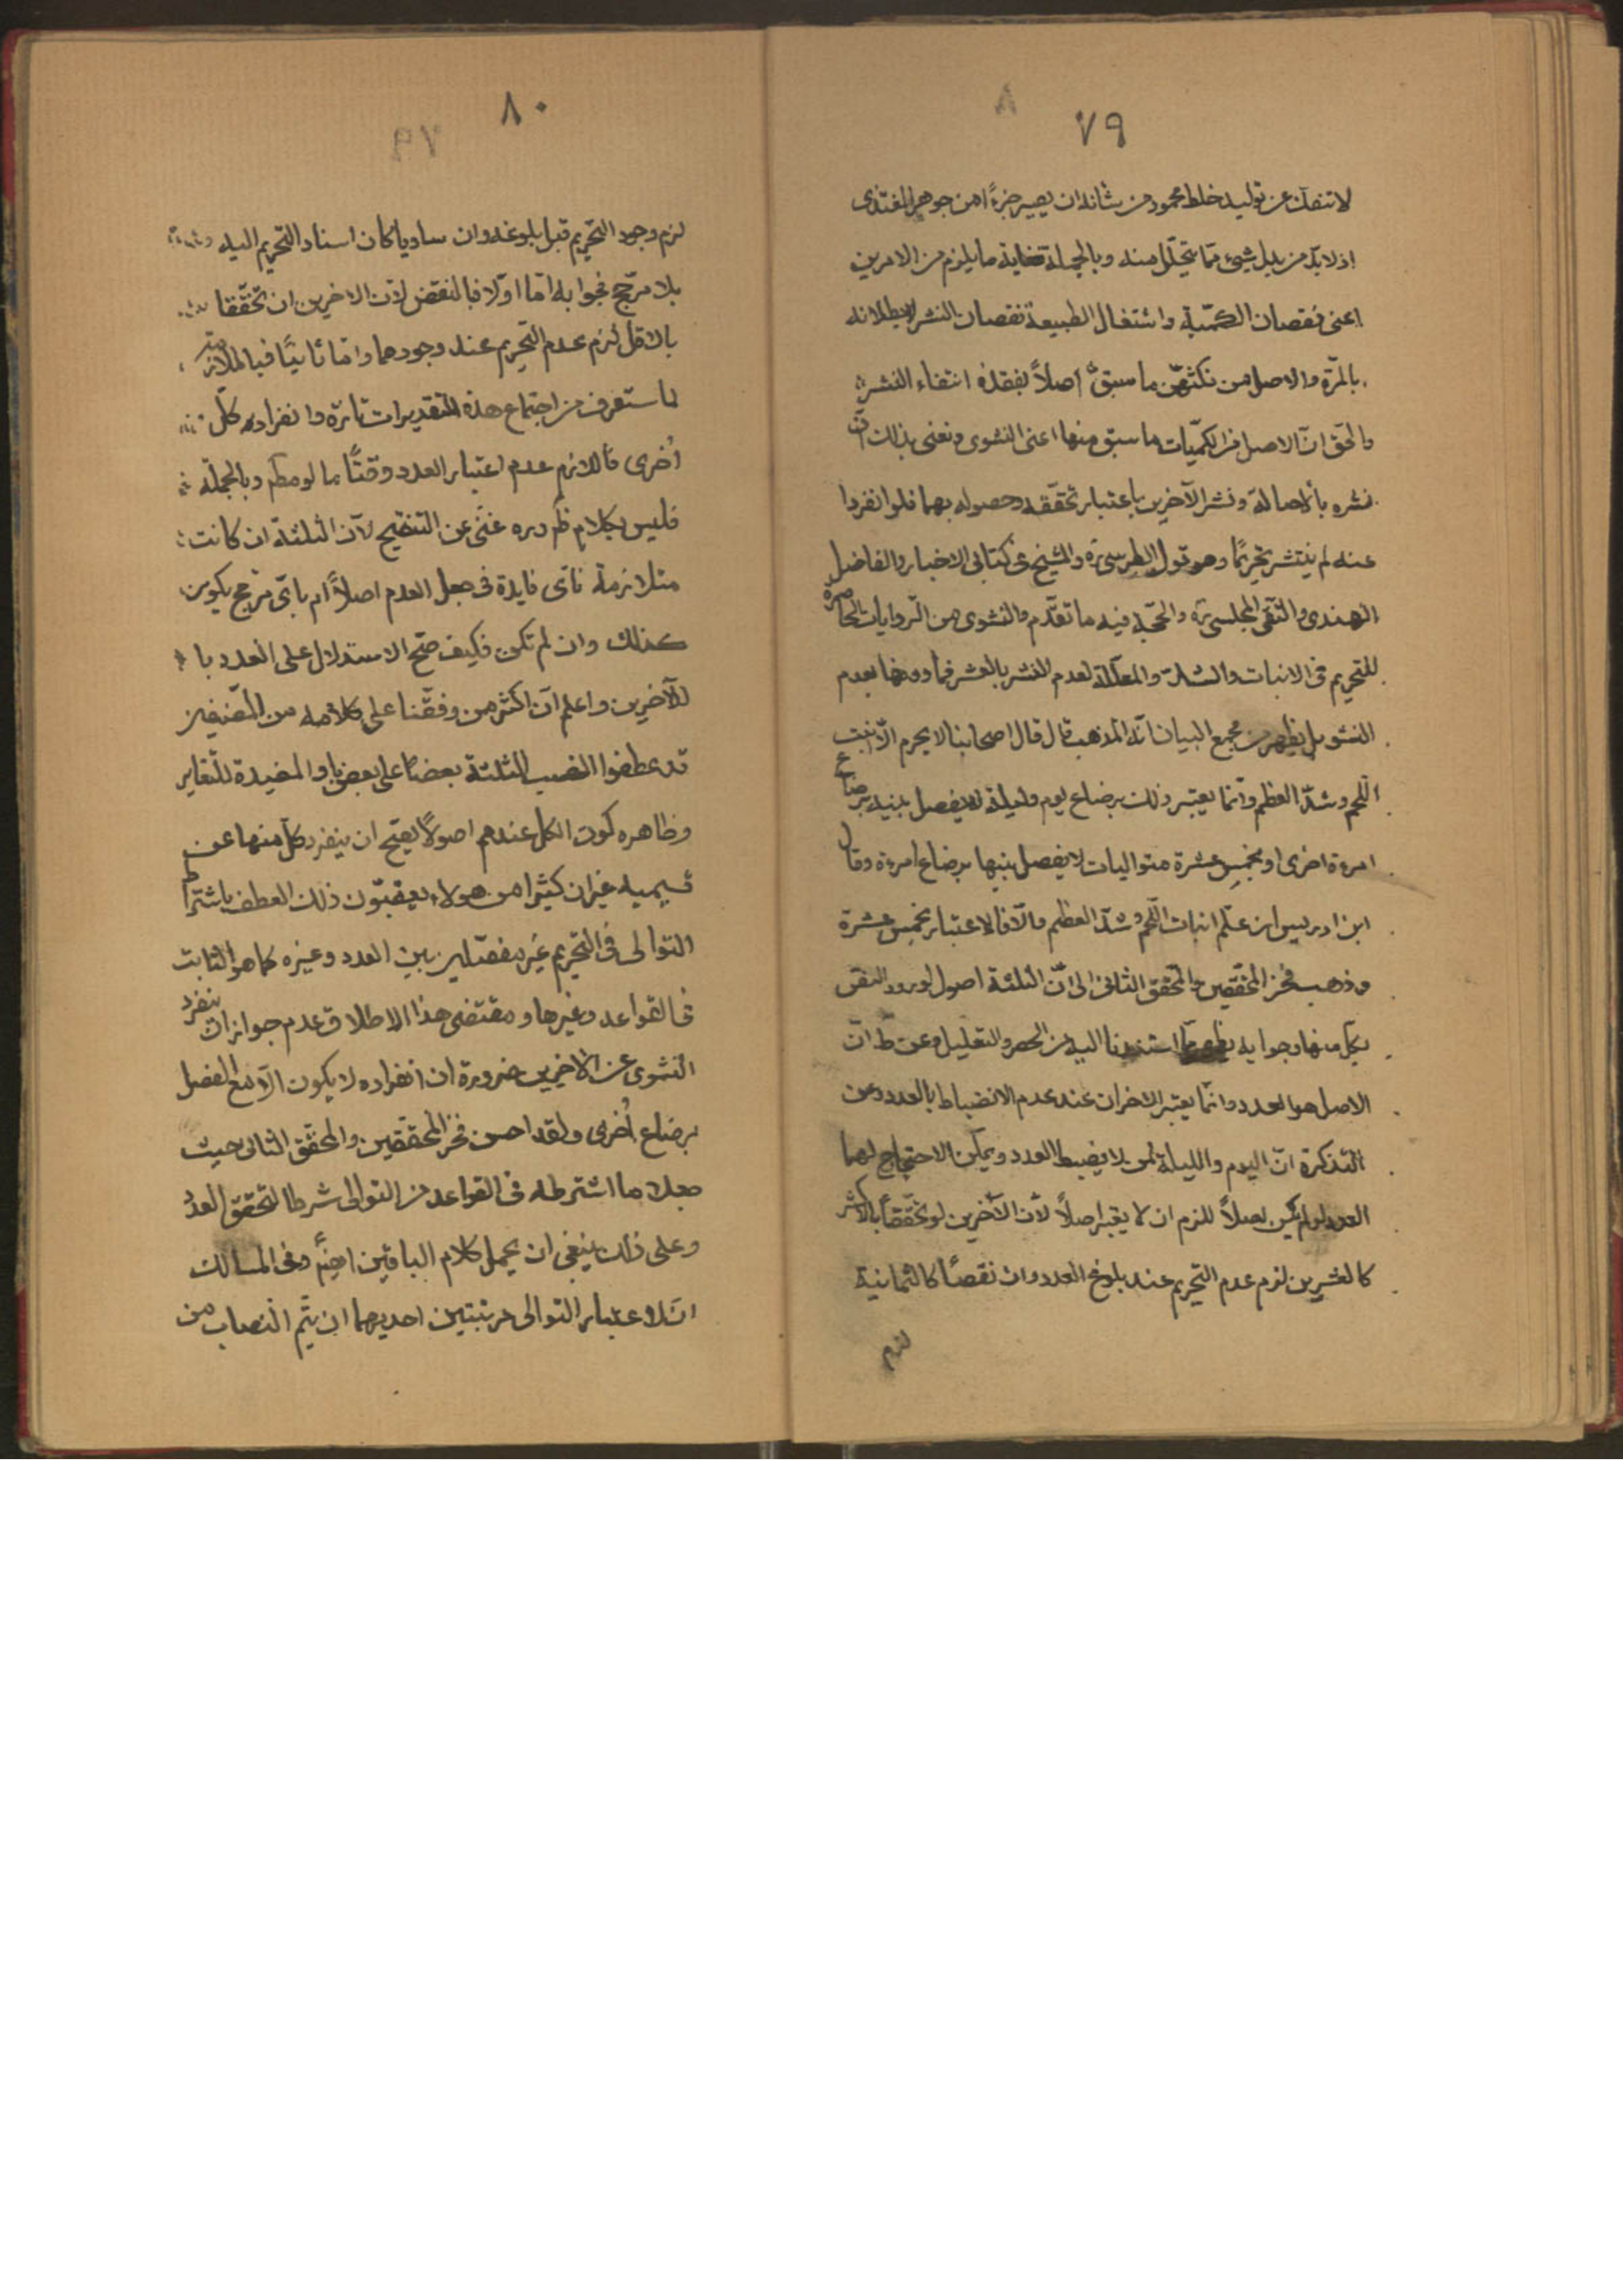 ٧٩
لا تنفك عن توليد خلط محمود من شانه ان يصير جزءًا من جوهر المغتذى
اذ لا بدّ من بدل شيئ مما يتحلّل منه وبالجملة فغاية ما يلزم من الامرين
اعنى نقصان الكمّية واشتغال الطبيعة نقصان النشر لا بطلانه
بالمرّة والاصل من ما سبق اصلاً بفقده انتفاء النشر
والحق انّ الاصل من الكميّات ما سبق منها اعنى النشوى ونعنى بذلك انّ
نشره بالاصالة ونشر الآخرين باعتبار تحقّقه وحصوله بهما فلو انفردا
عنه لم ينتشر تحريمًا وهو قول الطبرسى ره والشيخ فى كتابى الاخبار والفاضل
الهندى والتقى المجلسى ره والحجة فيه ما تقدّم والنشوى من الرّوايات الحاصرة
للتحريم فى الانبات والشدّ والمعلّلة لعدم النشر بالعشر فما دونها بعدم
النشو بل يظهر من مجمع البيان انّه المذهب قال قال اصحابنا لا يحرم الّا ما انبت
اللحم وشدّ العظم وانّما يعتبر ذلك برضاع يوم وليلة لا يفصل بينه برضاع
امرءة اخرى او بخمس عشرة متواليات لا يفصل بينها برضاع امرءة وقال
ابن ادريس ان علم انبات اللحم وشدّ العظم والّا فالاعتبار بخمس عشرة
وذهب فخر المحققين والمحقق الثانى الى انّ الثلثة اصول لورود النص
بكلّ منها وجوابه يظهر ممّا استندنا اليه من الحصر والتعليل وعن ط انّ
الاصل هو العدد وانّما يعتبر الاخران عند عدم الانضباط بالعدد وعن
التذكرة انّ اليوم والليلة لمن لا يضبط العدد ويمكن الاحتجاج لهما
العدد لو لم يكن اصلاً للزم ان لا يعتبر اصلاً لانّ الآخرين لو تحقّقا بالاكثر
كالعشرين لزم عدم التحريم عند بلوغ العدد وان نقصا كالثمانية
لزم
٨٠
لزم وجود التحريم قبل بلوغه وان ساويا كان اسناد التحريم اليه
بلا مرّجح فجوابه امّا اوّلا فبالنقض لانّ الاخرين ان تحقّقا
بالاقل لزم عدم التحريم عند وجودهما وامّا ثانيًا فبالملازمة
لما ستعرف من اجتماع هذه التقديرات تارة وانفراد كلّ
اُخرى فاللازم عدم اعتبار العدد وقتًا ما لا مطم وبالجملة
فليس بكلام ظهوره غنى عن التنقيح لانّ الثلثة ان كانت
متلازمة فاىّ فايدة فى جعل العدم اصلاً ام باىّ مرجح يكون
كذلك وان لم تكن فكيف صحّ الاستدلال على العدد با
للآخرين واعلم انّ اكثر من وقفنا على كلامه من المصنفين
قد عطفوا النصب الثلثة بعضا على بعض باو المفيدة للتغاير
وظاهره كون الكل عندهم اصولاً يصحّ ان ينفرد كلّ منها عن
قسيميه غير ان كثيرا من هولاء يعقبّون ذلك العطف باشتراط
التوالى فى التحريم غير مفصّلين بين العدد وغيره كما هو الثابت
فى القواعد وغيرها ومقتضى هذا الاطلاق عدم جواز ان ينفرد
النشوى عن الاخيرين ضرورة ان انفراده لا يكون الّا مع الفصل
برضاع اُخرى ولقد احسن فخر المحققين والمحقق الثانى حيث
جعلا ما اشترطه فى القواعد من التوالى شرطا لتحقق العدد
وعلى ذلك ينبغى ان يحمل كلام الباقين ايضًا وفى المسالك
انّ لاعتبار التوالى مرتبتين احديهما ان يتم النصاب من